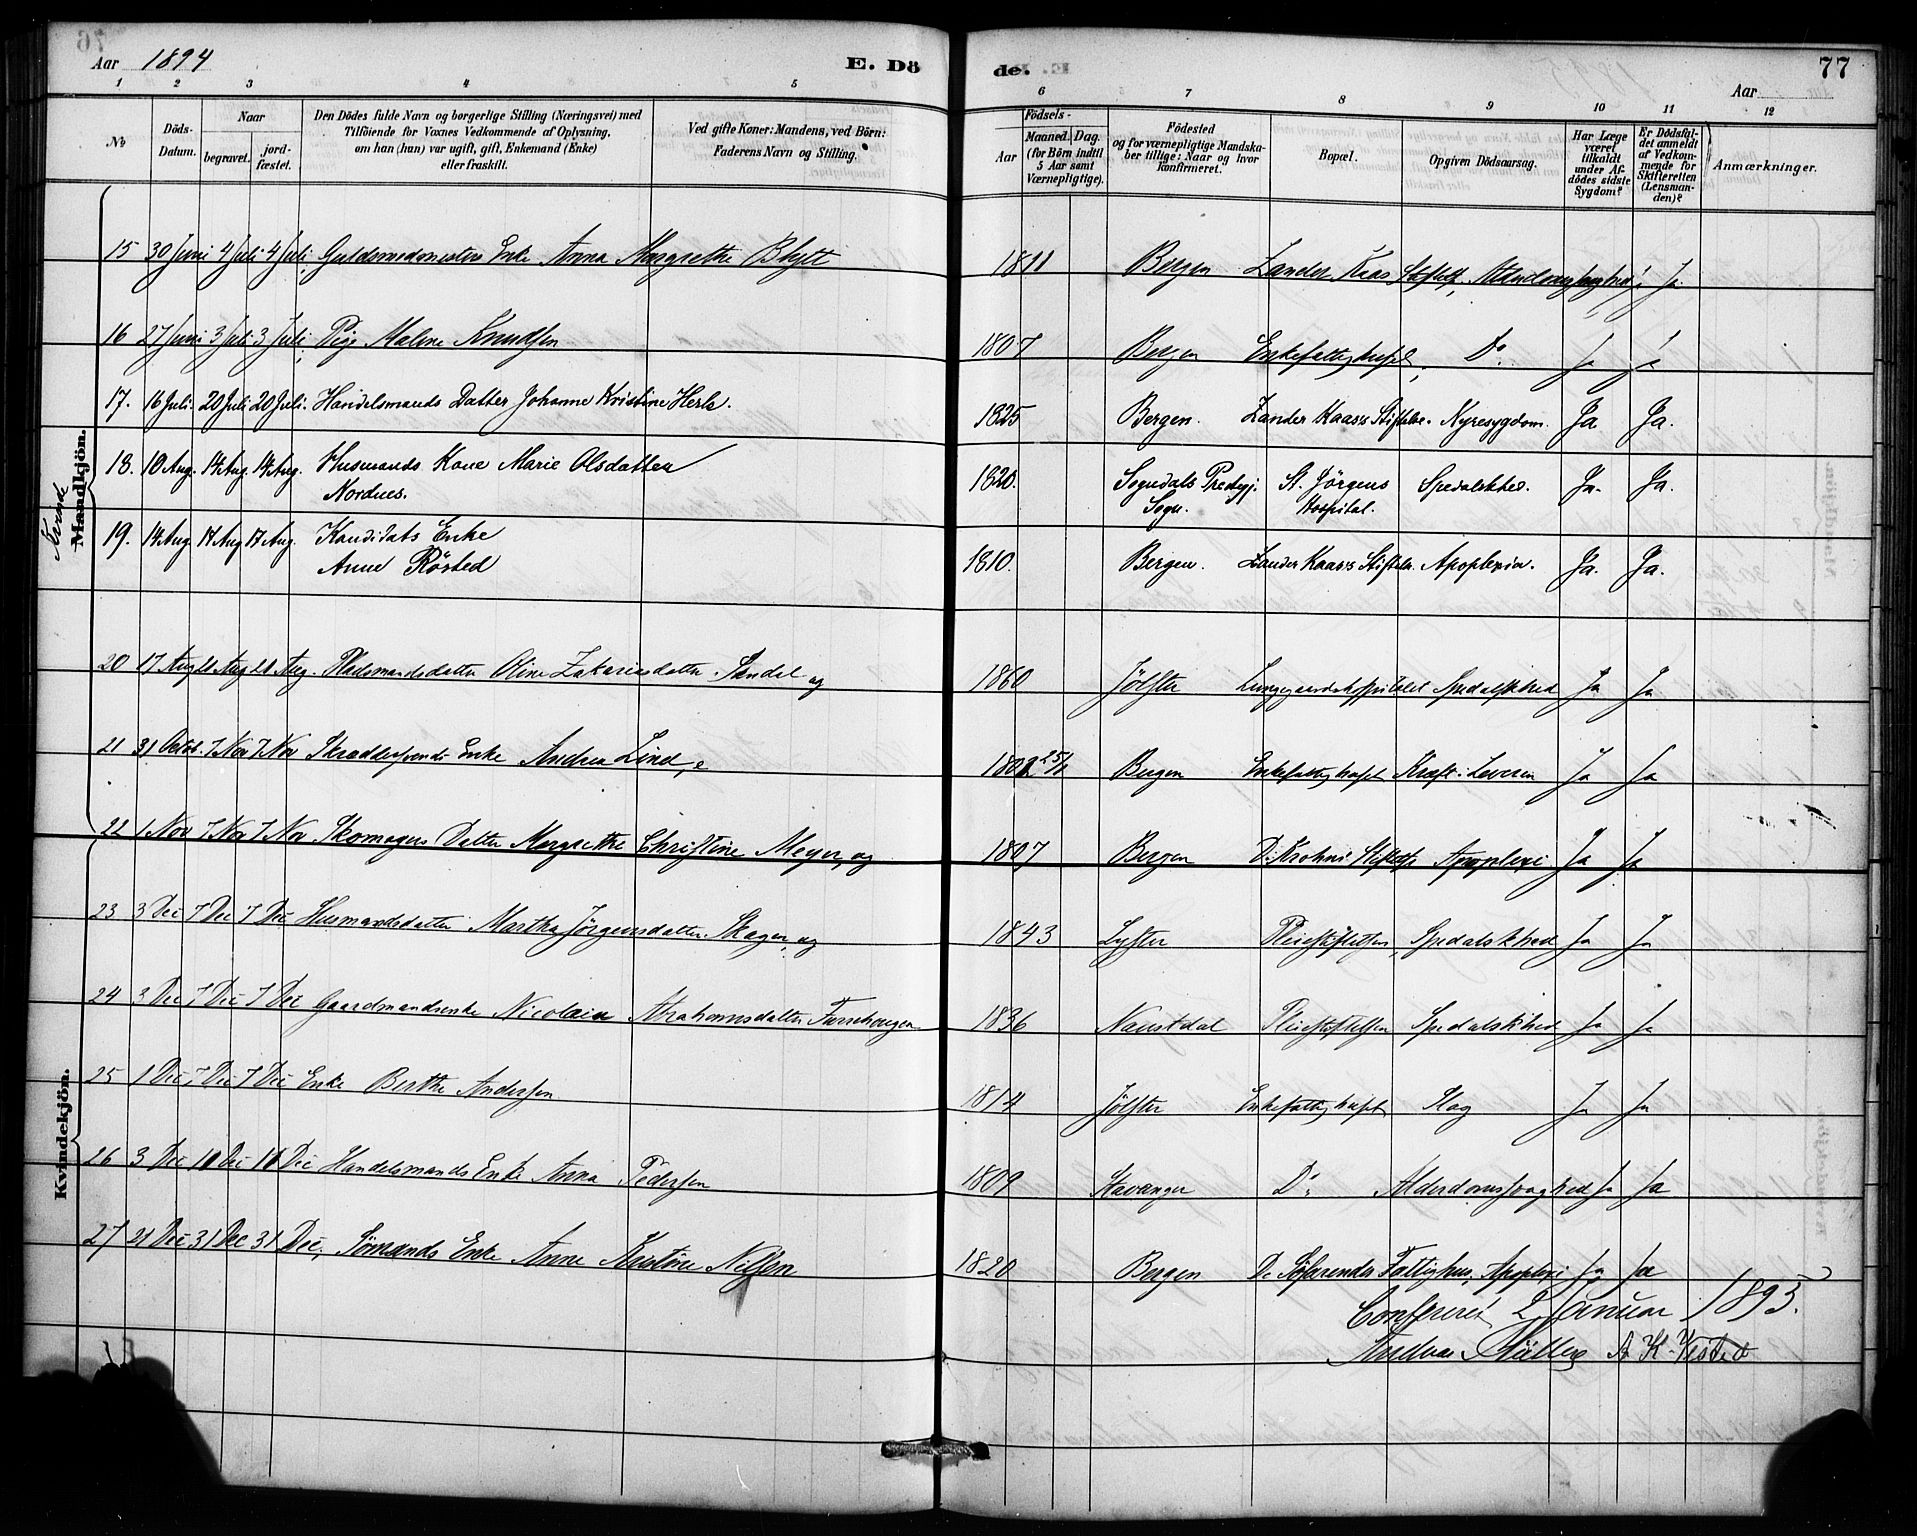 76
Aar 1894 E. Dö de. Aar 77
1 2 3 4 5 6 7 8 9 10 11 12
No
Döds-Datum.
Naar
begravet.
jord-fæstet.
Den Dödes fulde Navn og borgerlige Stilling (Næringsvei) med
Tilföiende for Voxnes Vedkommende af Oplysning,
om han (hun) var ugift, gift, Enkemand (Enke)
eller fraskilt.
Ved gifte Koner: Mandens, ved Börn:
Faderens Navn og Stilling.
Födsels-
Aar
Maaned. Dag.
(for Börn indtil
5 Aar samt
Værnepligtige).
Födested
og for værnepligtige Mandska-
ber tillige: Naar og hvor
Konfirmeret.
Bopæl.
Opgiven Dödsaarsag.
Har Læge
været
tilkaldt
under Af-
dödes sidste
Sygdom?
Er Dödsfal-
det anmeldt
af Vedkom-
mende for
Skifteretten
(Lensman-
den)?
Anmærkninger.
Kvinde
Mandkjön.
15 30 Juni 4 Juli 4 Juli Guldsmedmesters Enke Anna Margrethe Blytt 1811 Bergen Zander Kaas Stiftelse Ja
16 27 Juni 3 Juli 3 Juli Pige Malene Knudsen 1807 Bergen Enkefattighuset Do Ja Ja
17. 16 Juli. 20 Juli 20 Juli. Handelsmands Datter Johanne Kristine Herls. 1825 Bergen. Zander Kaas's Stiftelse. Nyresygdom. Ja Ja.
18. 10 Aug. 14 Aug. 14 Aug. Husmands Kone Marie Olsdatter 1820. Sogndals Prestegj. St. Jörgens Spedalskhed. Ja. Ja.
Nordnes. Sogn. Hospital.
19. 14 Aug. 17 Aug 17 Aug. Kandidats Enke
Anne Rösted 1810. Bergen. Zander Kaas's Stiftelse. Apoplexia. Ja. Ja.
20 17 Aug 21 Aug 21 Aug. Pladsmandsdatter Oline Zakariasdatter Sandal ug 1860 Jölster Lungegaardshospitalet Spedalskhed Ja Ja
21 31 Octob. 7 Nov 7 Nov Skræddersvends Enke Andrea Lind, e Bergen Enkefattighuset Kræft i Leveren Ja Ja
22 1 Nov 7 Nov 7 Nov Skomagers Datter Margrethe Christine Meyer, ug 1807 Bergen D. Krohns Stiftelse Apoplexi Ja Ja
Kvindekjön.
23 3 Dec 7 Dec 7 Dec Husmandsdatter Martha Jörgensdatter Skagen, ug 1843 Lyster Pleiestiftelsen, Spedalskhed Ja Ja
24 3 Dec 7 Dec 7 Dec Gaardmandsenke Nicolaia Abrahamsdatter 1836 Naustdal Pleiestiftelsen Spedalskhed Ja Ja
25 1 Dec 7 Dec 7 Dec Enke Berthe Andersen 1814 Jölster Enkefattighuset Slag Ja Ja
26 3 Dec 10 Dec 10 Dec Handelsmands Enke Anna Pedersen 1809 Stavanger Do Alderdomssvaghed Ja Ja
27 21 Dec 31 Dec 31 Dec, Sömands Enke Anne Kristine Nilsen 1820 Bergen De Söfarendes Fattighus, Apoplexi Ja Ja
Confereret 2 Januar 1895.
Müller A K Visted